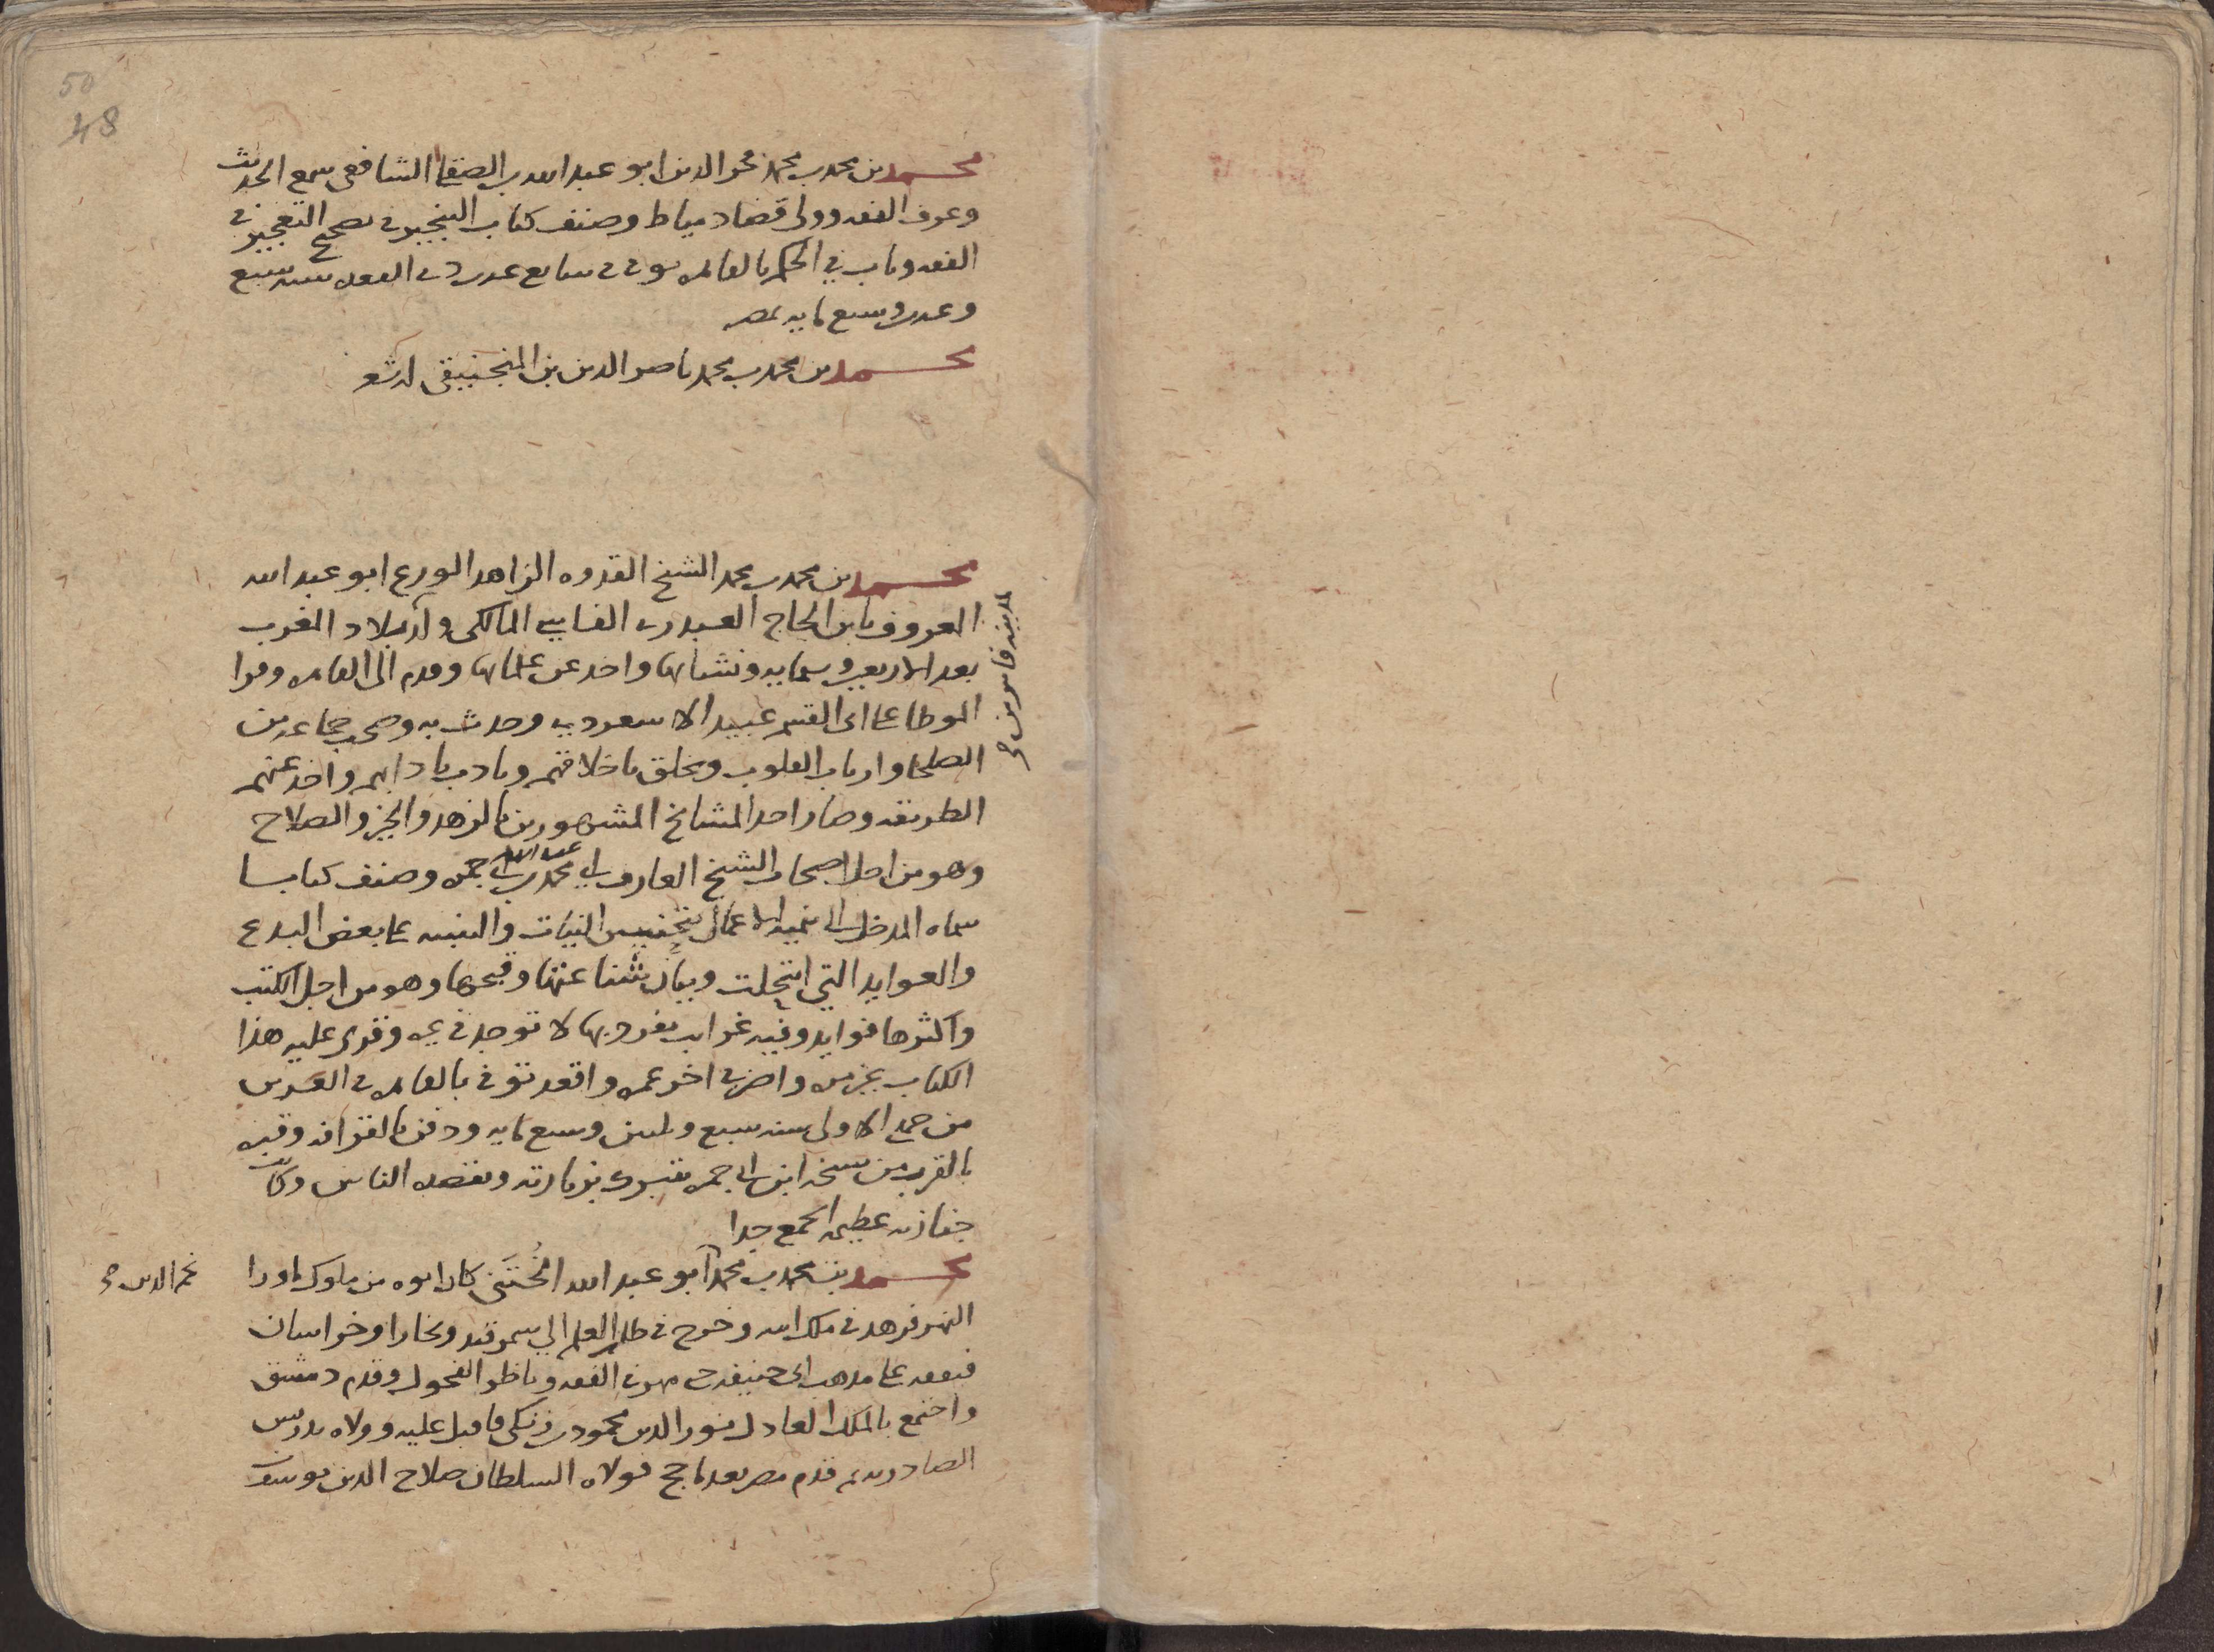 50
48
محمد بن محمد بن محمد فخر الدين ابو عبد الله بن الصقلي الشافعي سمع الحديث
وعرف الفقه وولى قضا دمياط وصنف كتاب التنجيز في تصحيح التعجيز في
الفقه وناب في الحكم بالقاهره توفي في سابع عشر ذي القعده سنه سبع
وعشرين وسبع مايه بمصر
محمد بن محمد بن محمد ناصر الدين بن المنجنيقي له شعر
محمد بن محمد بن محمد الشيخ القدوه الزاهد الورع ابو عبد الله
المعروف بابن الحاج العبدري الفاسي المالكي ولد ببلاد المغرب
بمدينه فاس من
بعد الاربعين وستمايه ونشا بها واخذ عن علمايها وقدم الى القاهره وقرا
الموطا على ابي القسم عبيد الاسعردي وحدث به وصحب جماعه من
الصلحا وارباب القلوب وتخلق باخلاقهم وتادب بادابهم واخذ عنهم
الطريقه وصار احد المشايخ المشهورين بالزهد والخير والصلاح
وهو من اجل اصحاب الشيخ العارف ابي محمد عبد الله بن ابي جمره وصنف كتابا
سماه المدخل الى تنميه الاعمال بتحسين النيات والتنبيه على بعض البدع
والعوايد التي انتحلت وبيان شناعتها وقبحها وهو من اجل الكتب
واكثرها فوايد وفيه غرايب تفرد بها لا توجد في غيره وقرى عليه هذا
الكتاب غير مره واضر في اخر عمره واقعد توفي بالقاهره في العشرين
من جمدى الاولى سنه سبع وثلثين وسبع مايه ودفن بالقرافه وقبره
بالقرب من شيخه ابن ابي جمره يتبرك بزيارته ويقصده الناس وكانت
جنازته عظيمه الجمع جدا
محمد بن محمد بن محمد ابو عبد الله الخُتَني كان ابوه من ملوك ماورا
نجم الدين
النهر فزهد في ملك ابيه وخرج في طلب العلم الى سمرقند وبخارا وخراسان
فتفقه على مذهب ابي حنيفه حتى مهر في الفقه وناظر الفحول وقدم دمشق
واجتمع بالملك العادل نور الدين محمود بن زنكي فاقبل عليه وولاه تدريس
الصادريه ثم قدم مصر بعد ما حج فولاه السلطان صلاح الدين يوسف